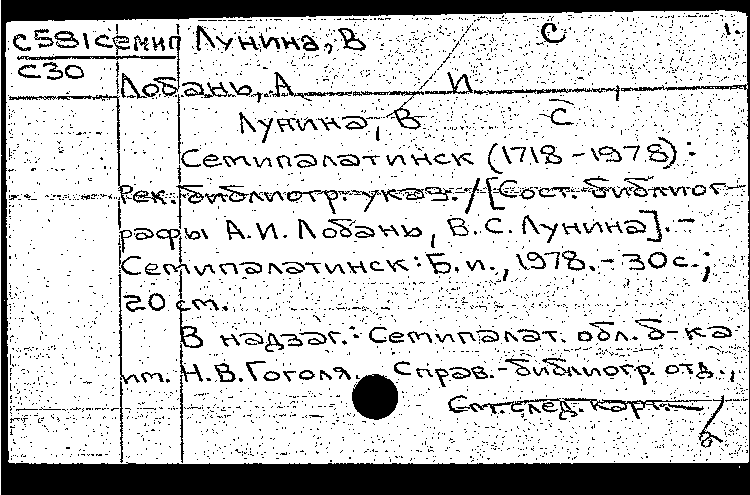 С581семип Лунина, В С 1.
С30
Лобань, А И
Лунина, В С
Семипалатинск (1718-1978):
Рек. библиогр. указ. / [Сост. библиог
рафы А.И. Лобань, В.С. Лунина]. -
Семипалатинск: Б.и., 1978. - 30с.;
20 см.
В надзаг.: Семипалат. обл. б-ка
им. Н.В. Гоголя. Справ.-библиогр. отд.,
См. след. карт.